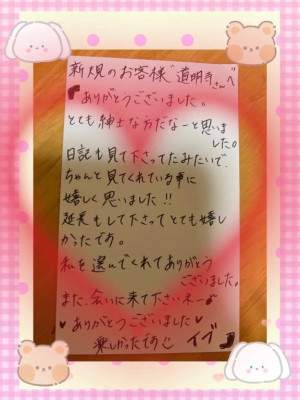 新規のお客様"道明寺さんへ
ありがとうございました。
とても紳士な方だなーと思いま
した。
日記も見て下さってたみたいで、
ちゃんと見てくれている事に
嬉しく思いました!!
延長もして下さってとても嬉し
かったです。
私を選んでくれてありがとう
ございました。
また、会いに来て下さいネー♪
♥ありがとうございました♥
楽しかったです イブ